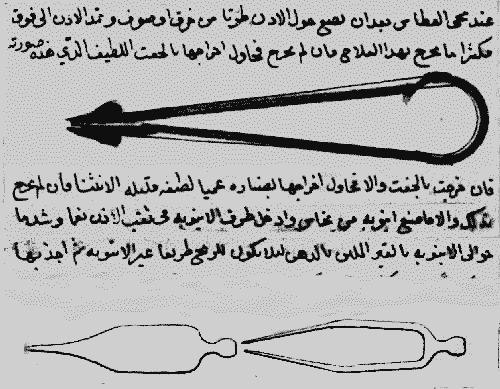 عند مجى العطاس بعد ان تصنع حول الاذن طوقا من خرق او صوف وتمد الاذن الى فوق
فكثيرا ما يخرج بهذا العلاج فان لم يخرج فحاول اخراجها بالجفت اللطيف الذي هذه صورته
فان خرجت بالجفت والا فحاول اخراجها بصناره عميا لطيفه قليله الانثنا فان لم يخرج
بذلك والا فاصنع انبوبه من نحاس وادخل طرف الانبوبه في ثقب الاذن نعما وشد ما
حوالى الانبوبه بالقير الملين بالدهن ليلا يكون للريح طريقا غير الانبوبه ثم اجذبها